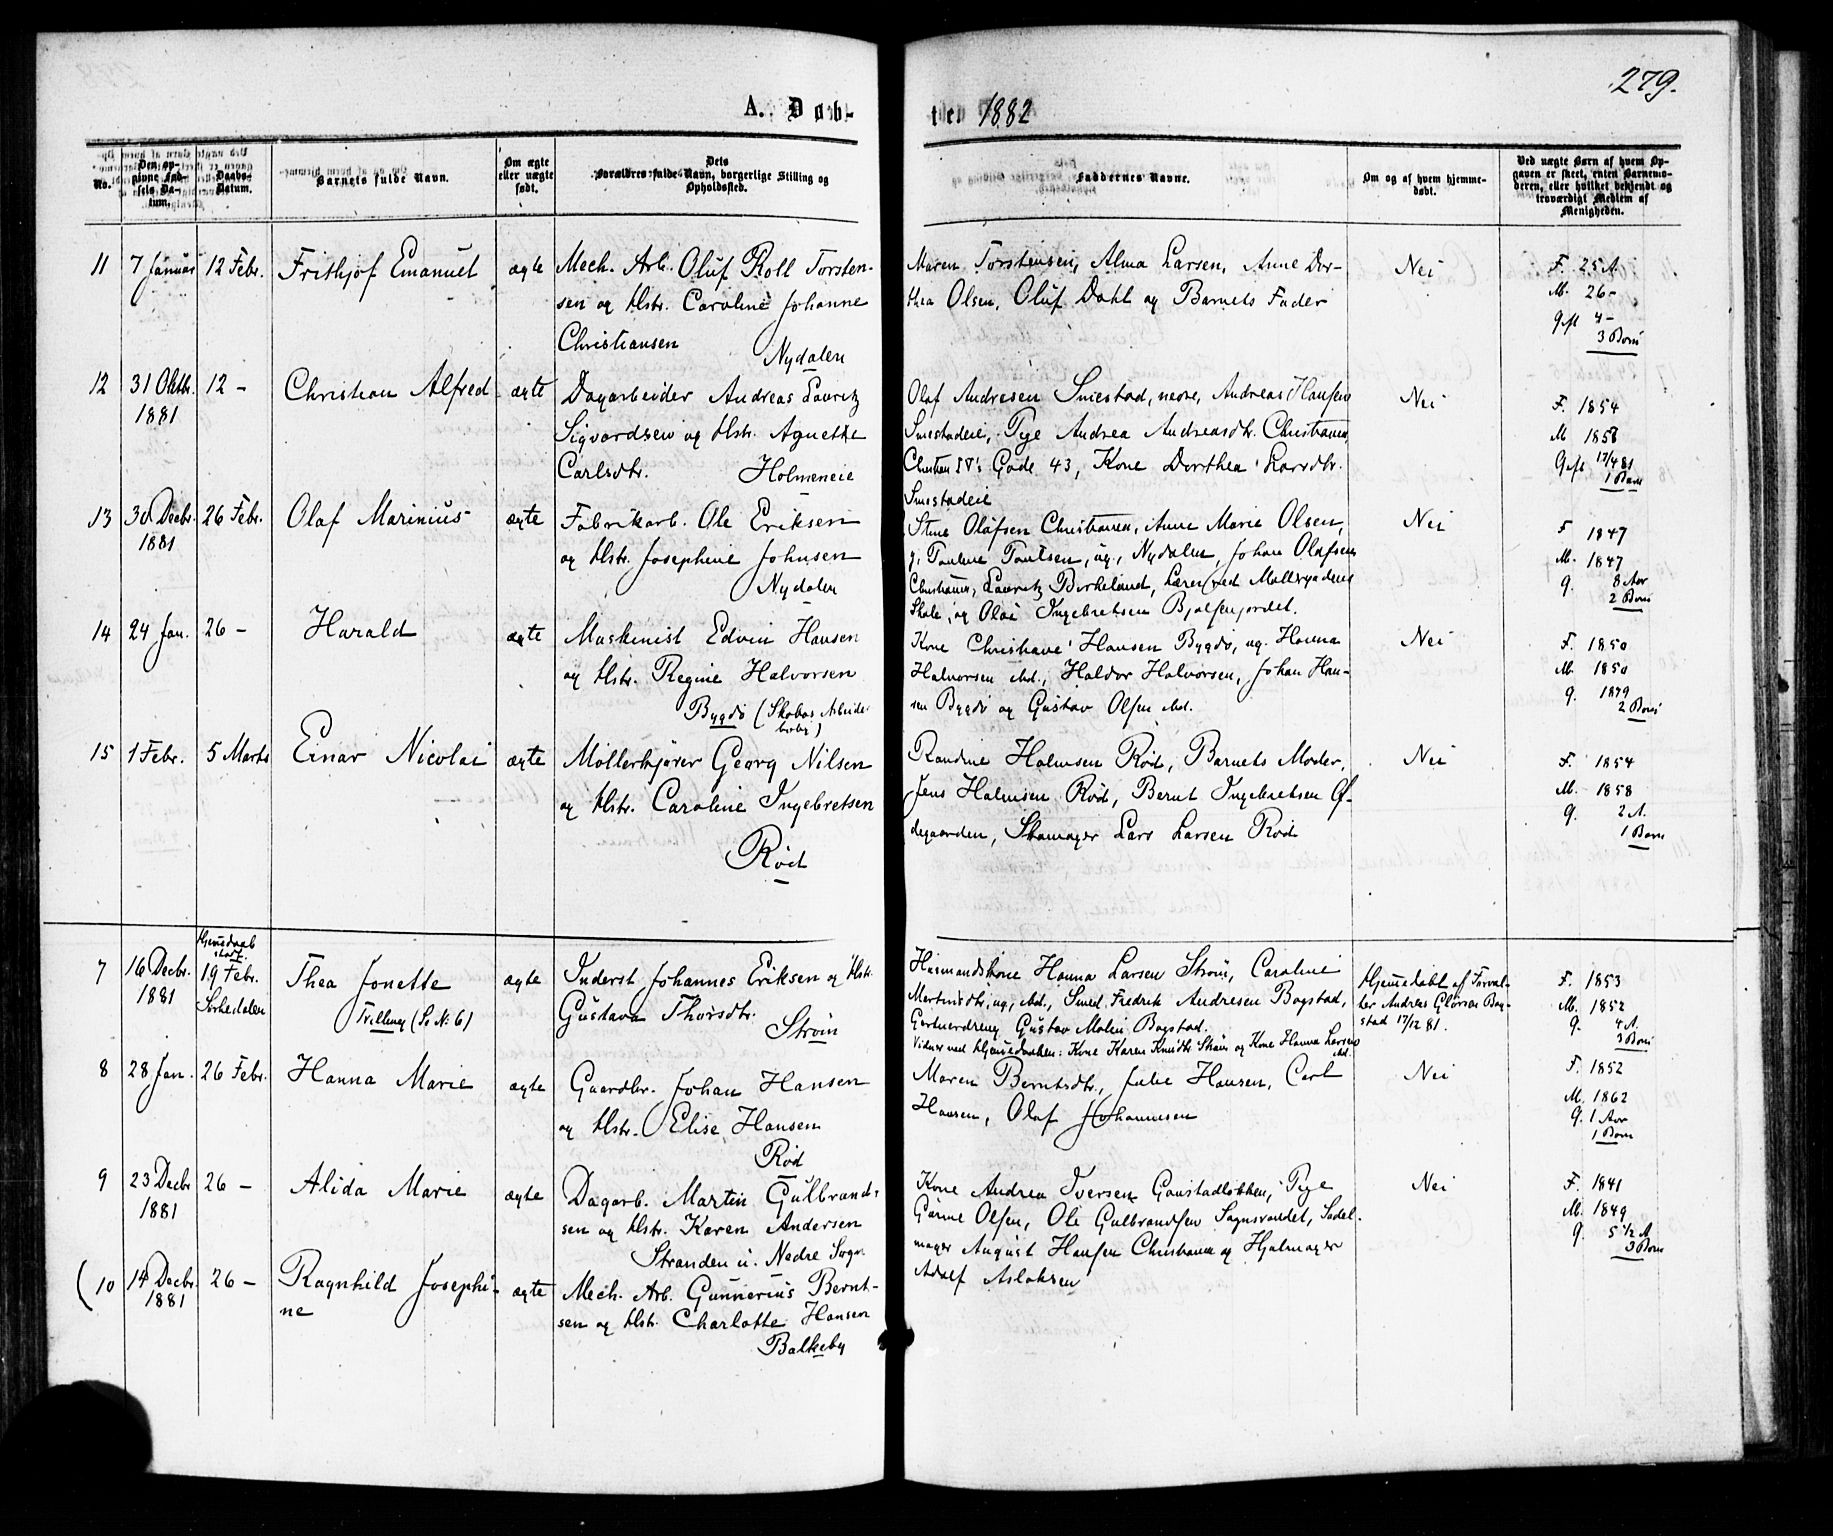 279.
A. Døb-
te 1882
No.
Den op-
givne Fød-
sels Da-
tum.
Daabs-
Datum.
Barnets fulde Navn.
Om ægte
eller uægte
født.
Dets
Forældres fulde Navn, borgerlige Stilling og
Opholdssted.
Faddernes Navne.
Om og af hvem hjemme-
døbt.
Ved uægte Børn af hvem Op-
gaven er skeet, enten Barnemo-
deren, eller hvilket bekjendt og
troværdigt Medlem af
Menigheden.
11 7 Januar 12 Febr. Frithjof Emanuel ægte Mech. Arb. Oluf Roll Torsten-
sen og Hstr. Caroline Johanne
Christiansen
Nydalen
Maren Torstensen, Alma Larsen, Anne Dor-
thea Olsen, Oluf Dahl og Barnets Fader
Nei
F. 25 A.
M. 26 -
gft 4 -
3 Børn
12 31 Oktb. 1881 12 - Christian Alfred ægte Dagarbeider Andreas Lauritz
Sigvardsen og Hstr. Agnethe
Carlsdtr. Holmeneie
Olaf Andresen Smestad, nedre, Andreas Hansen
Smestadeie, Pige Andrea Andreasdtr. Christiania,
Christian IV's Gade 43, Kone Dorthea Larsdtr.
Smestadeie
Nei
F. 1854
M 1858
Gift 17/4 81
1 Barn
13 30 Decbr. 1881 26 Febr. Olaf Marinius ægte Fabrikarb. Ole Eriksen
og Hstr. Josephine Johnsen
Nydalen
Stine Olafsen Christiania, Anne Marie Olsen,
g, Pauline Paulsen, ug., Nydalen, Johan Olafsen
Christiania, Lauritz Birkeland, Lærer ved Møllergadens
Skole, og Olai Ingebretsen Bjølsenjordet.
Nei
F 1847
M. 1847
g. 8 Aar
2 Børn
14 24 Jan. 26 - Harald ægte Maskinist Edvin Hansen
og Hstr. Regine Halvorsen
Bygdø (Skabos Arbeider
bolig)
Kone Christiane Hansen Bygdø, ug. Hanna
Halvorsen ibd., Haldor Halvorsen, Johan Han-
sen Bygdø og Gustav Olsen ibd.
Nei
F. 1850
M. 1850
g. 1879
2 Børn
15 1 Febr. 5 Marts Einar Nicolai ægte Møllerkjører Georg Nilsen
og Hstr. Caroline Ingebretsen
Rød
Randine Halmsen Rød, Barnets Moder,
Jens Halmsen Rød, Bernt Ingebretsen Ø-
degaarden, Skomager Lars Larsen Rød
Nei
F. 1854
M. 1858
g. 2 A.
1 Barn
7 16 Decbr. 1881 Hjemedaab
stadf.
19 Febr.
Sørkedalen
Thea Jonette
Tvilling (Se N: 6)
ægte Inderst Johannes Eriksen og Hstr.
Gustava Thorsdtr.
Strøm
Husmandskone Hanna Larsen Strøm, Caroline
Mortensdtr, ug, ibd., Smed Fredrik Andresen Bogstad,
Gartnerdreng Gustav Malin Bogstad.
Vidner ved Hjemedaaben: Kone Karen Knudtr Strøm og Kone Hanna Larsen
ibd.
Hjemedøbt af Forval-
ter Andreas Glørsen Bog-
stad 17/12 81.
F. 1853
M. 1852
g. 4 A.
3 Børn
8 28 Jan. 26 Febr. Hanna Marie ægte Gaardbr. Johan Hansen
og Hstr. Elise Hansen
Rød
Maren Berntsdtr., Julie Hansen, Carl
Hansen, Olaf Johannesen
Nei
F. 1852
M. 1862
g. 1 Aar
1 Barn
9 23 Decbr 1881 26 - Alida Marie ægte Dagarb. Martin Gulbrand-
sen og Hstr. Karen Andersen
Stranden u. Nedre Sogn
Kone Andrea Iversen Gaustadløkken, Pige
Gurine Olsen, Ole Gulbrandsen Sognsvandet, Sadel-
mager August Hansen Christiania og Hjulmager
Adolf Aslaksen
Nei
F. 1841
M. 1849
g. 5 1/2 A
3 Børn
(10 14 Decbr. 1881 26 - Ragnhild Josephi-
ne
ægte Mech. Arb. Gunnerius Bernt-
sen og Hstr. Charlotte Hansen
Balkeby